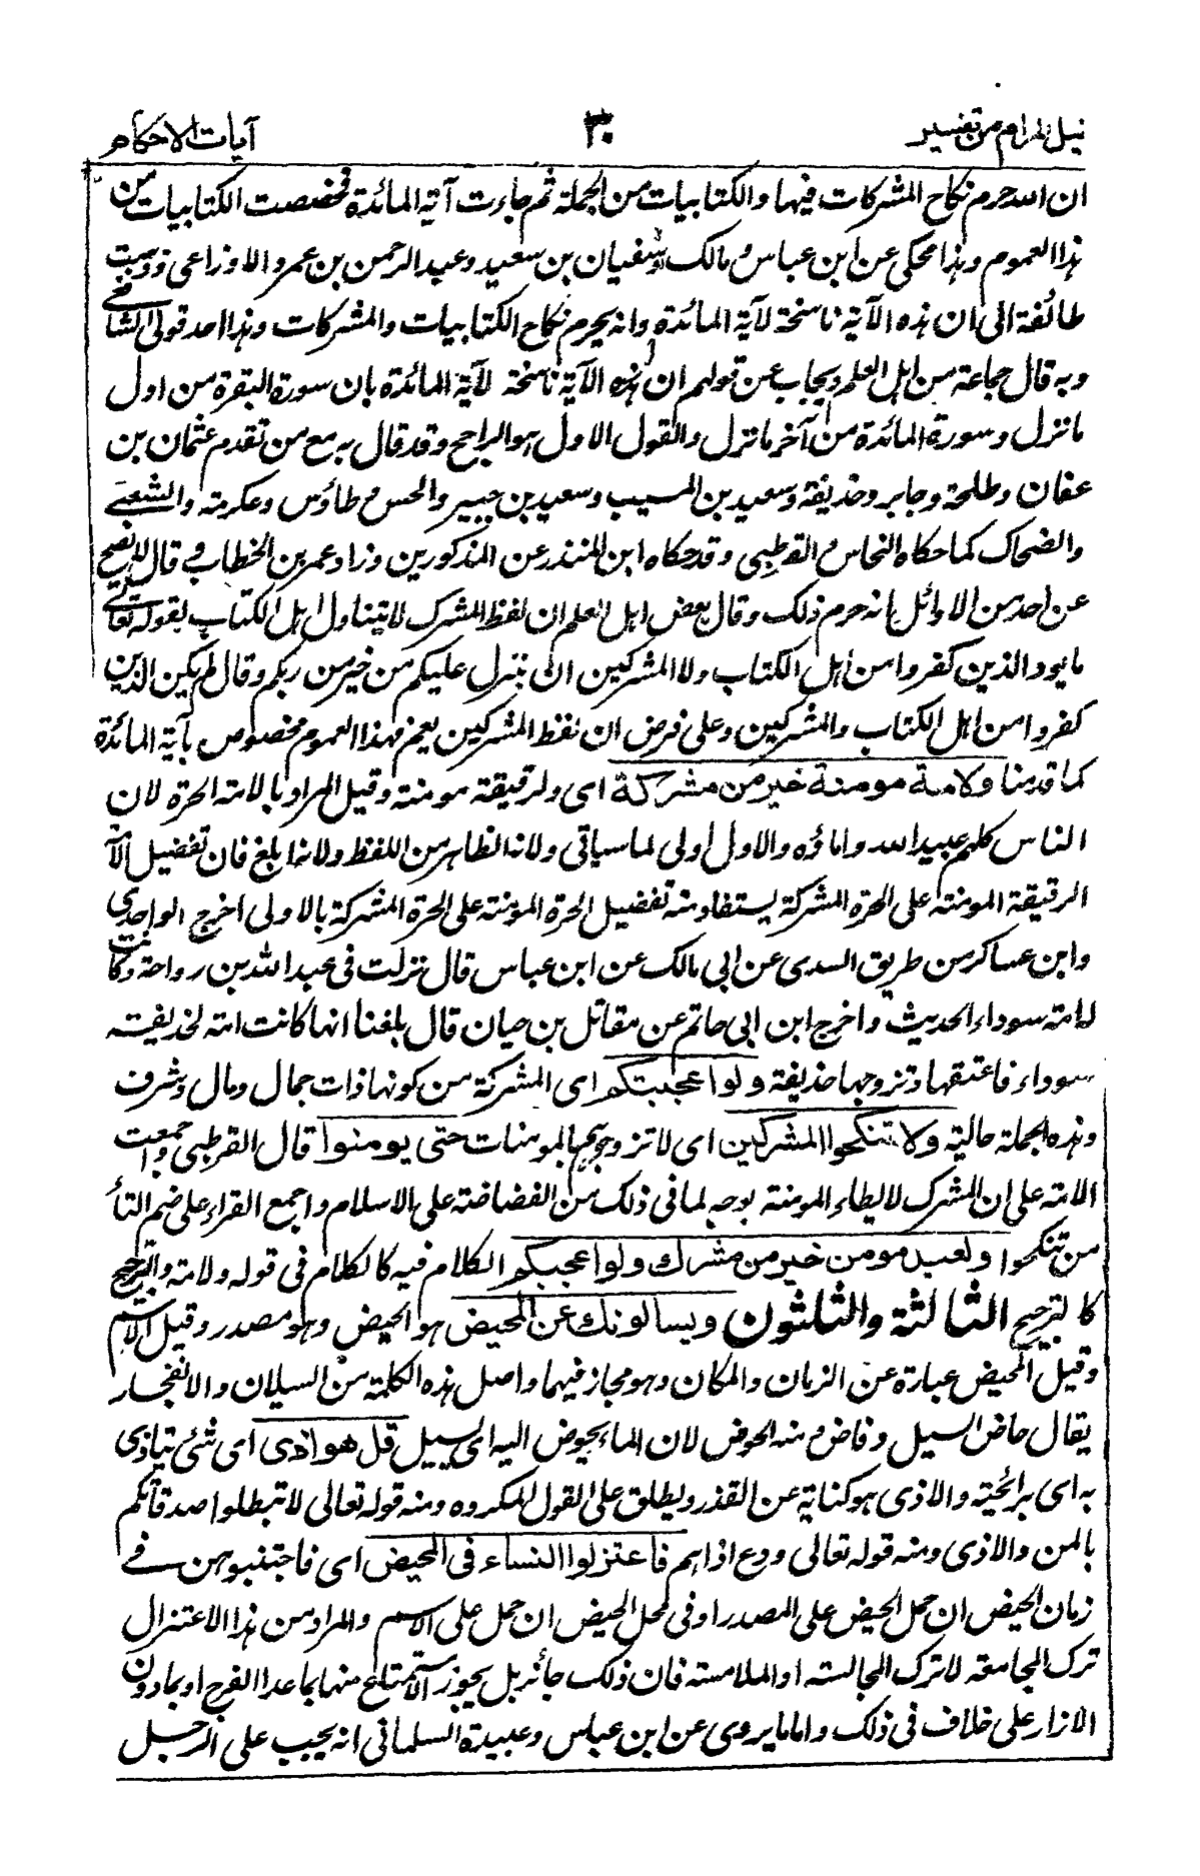 نيل المرام من تفسير ٣٠ آيات الاحكام
ان الله حرم نكاح المشركات فيها والكتابيات من الجملة ثم جاءت آية المائدة فخصصت الكتابيات من
هذا العموم وهذا محكي عن ابن عباس ومالك وسفيان بن سعيد وعبد الرحمن بن عمرو الاوزاعي وذهبت
طائفة الى ان هذه الآية ناسخة لآية المائدة وانه يحرم نكاح الكتابيات والمشركات وهذا احد قولي الشافعي
وبه قال جماعة من اهل العلم ويجاب عن قولهم ان هذه الآية ناسخة لآية المائدة بان سورة البقرة من اول
ما نزل وسورة المائدة من آخر ما نزل والقول الاول هو الراجح وقد قال به مع من تقدم عثمان بن
عفان وطلحة وجابر وحذيفة وسعيد بن المسيب وسعيد بن جبير والحسن وطاؤس وعكرمة والشعبي
والضحاك كما حكاه النحاس والقرطبي وقد حكاه ابن المنذر عن المذكورين وزاد عمر بن الخطاب وقال لا يصح
عن احد من الاوائل انه حرم ذلك وقال بعض اهل العلم ان لفظ المشرك لا يتناول اهل الكتاب لقوله تعالى
ما يود الذين كفروا من اهل الكتاب ولا المشركين ان ينزل عليكم من خير من ربكم وقال لم يكن الذين
كفروا من اهل الكتاب والمشركين وعلى فرض ان لفظ المشركين يعم فهذا العموم مخصوص بآية المائدة
كما قدمنا ولامة مومنة خير من مشركة اى ولرقيقة مومنة وقيل المراد بالامة الحرة لان
الناس كلهم عبيد الله واماؤه والاول اولى لما سياتى ولانه الظاهر من اللفظ ولانه ابلغ فان تفضيل الامة
الرقيقة المومنة على الحرة المشركة يستفاد منه تفضيل الحرة المومنة على الحرة المشركة بالاولى اخرج الواحدي
وابن عساكر من طريق السدى عن ابي مالك عن ابن عباس قال نزلت فى عبد الله بن رواحة وكانت
له امة سوداء الحديث واخرج ابن ابي حاتم عن مقاتل بن حيان قال بلغنا انها كانت امة لحذيفة
سوداء فاعتقها وتزوجها حذيفة ولو اعجبتكم اى المشركة من كونها ذات جمال ومال وشرف
وهذه الجملة حالية ولا تنكحوا المشركين اى لا تزوجوهم بالمومنات حتى يومنوا قال القرطبي واجمعت
الامة على ان المشرك لا يطاء المومنة بوجه لما فى ذلك من الغضاضة على الاسلام واجمع القراء على ضم التاء
من تنكحوا ولعبد مومن خير من مشرك ولو اعجبكم الكلام فيه كالكلام فى قوله ولامة والترجيح
كالترجيح الثالثة والثلثون ويسالونك عن المحيض هو الحيض وهو مصدر وقيل الاسم
وقيل المحيض عبارة عن الزمان والمكان وهو مجاز فيهما واصل هذه الكلمة من السيلان والانفجار
يقال حاض السيل وفاض ومنه الحوض لان الماء يحوض اليه اى يسيل قل هو اذى اى شئ يتاذى
به اى برائحته والاذى هو كناية عن القذر ويطلق على القول المكروه ومنه قوله تعالى لا تبطلوا صدقاتكم
بالمن والاذى ومنه قوله تعالى ودع اذاهم فاعتزلوا النساء فى المحيض اى فاجتنبوهن فى
زمان الحيض ان حمل المحيض على المصدر او فى محل الحيض ان حمل على الاسم والمراد من هذا الاعتزال
ترك المجامعة لا ترك المجالسة او الملامسة فان ذلك جائز بل يجوز الاستمتاع منها بما عدا الفرج او بما دون
الازار على خلاف فى ذلك واما ما يروى عن ابن عباس وعبيدة السلمانى انه يجب على الرجل